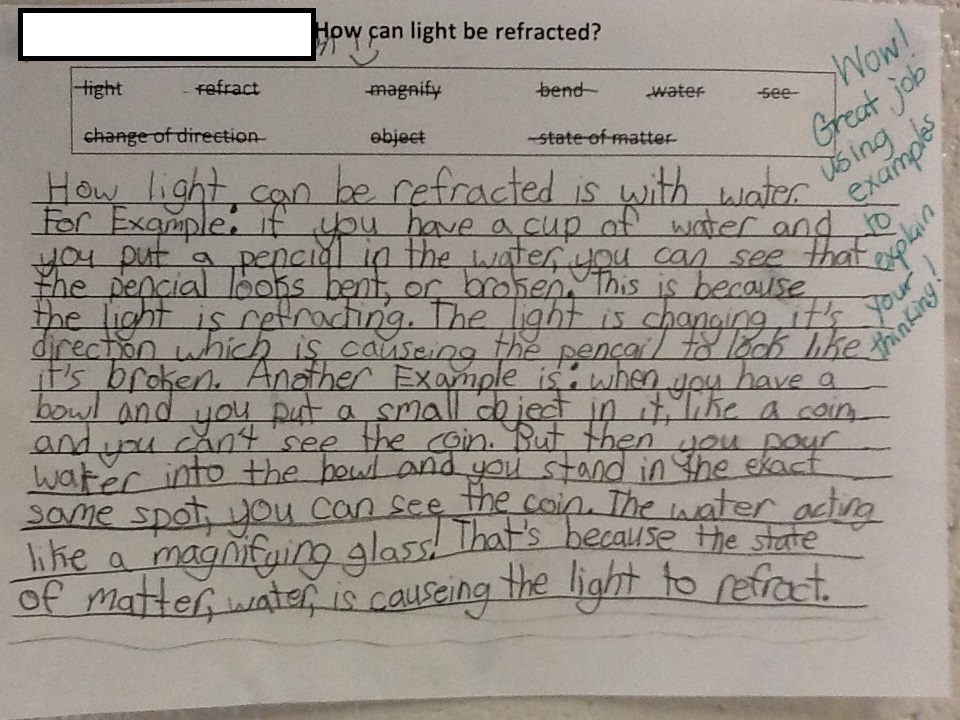 How can light be refracted?
light refract magnify bend water see
change of direction object state of matter
How light can be refracted is with water.
For Example: if you have a cup of water and
you put a pencial in the water, you can see that
the pencial looks bent, or broken. This is because
the light is refracting. The light is changing it's
direction which is causeing the pencail to look like
it's broken. Another Example is: when you have a
bowl and you put a small object in it, like a coin,
and you can't see the coin. But then you pour
water into the bowl and you stand in the exact
same spot, you can see the coin. The water acting
like a magnifying glass! That's because the state
of matter, water, is causeing the light to refract.
Wow!
Great job
using
examples
to
explain
your
thinking!